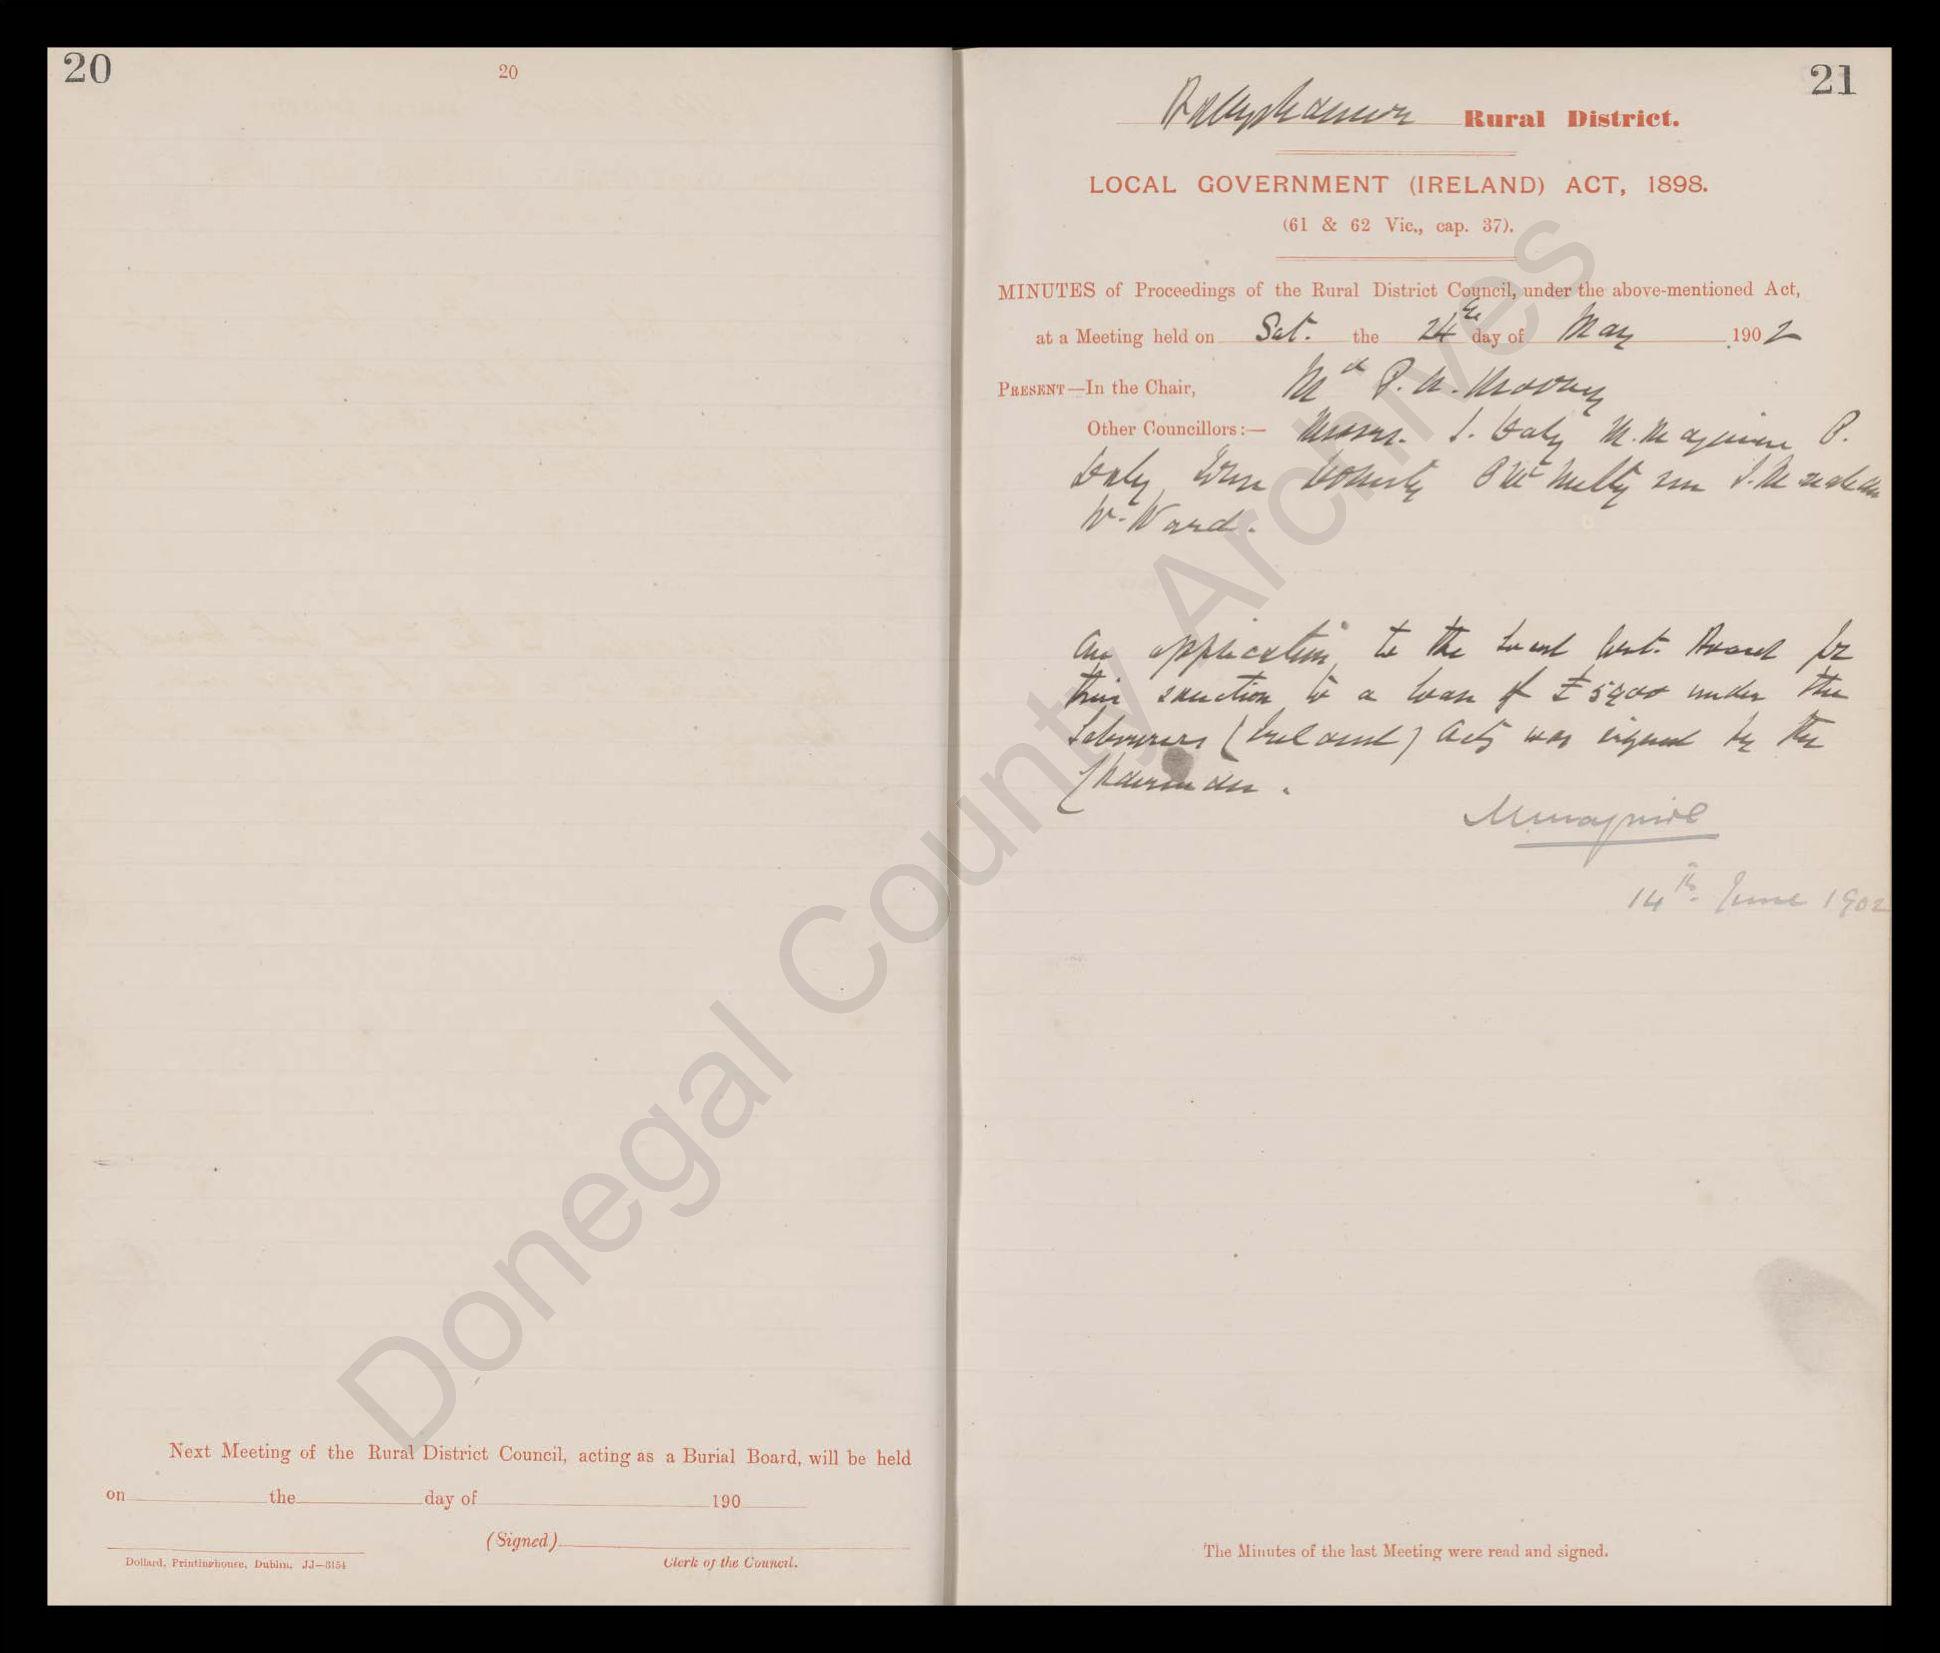 20
20
Next Meeting of the Rural District Council, acting as a Burial Board, will be held
on the day of 190
(Signed)
Dollard, Printinghouse, Dublin. JJ—3154 Clerk of the Council.
21
Ballyshannon Rural District.
LOCAL GOVERNMENT (IRELAND) ACT, 1898.
(61 & 62 Vic., cap. 37).
MINUTES of Proceedings of the Rural District Council, under the above-mentioned Act,
at a Meeting held on Sat. the 24th day of May 1902
PRESENT—In the Chair, Mr P. Mooney
Other Councillors:— Messrs. J. Daly M. Maguire P.
Daly
W. Ward.
An application to the Local Govt. Board for
their sanction to a loan of £5900 under the
Labourers (Ireland) Acts was signed by the
Chairman.
M Maguire
14th June 1902
The Minutes of the last Meeting were read and signed.
Donegal County Archives